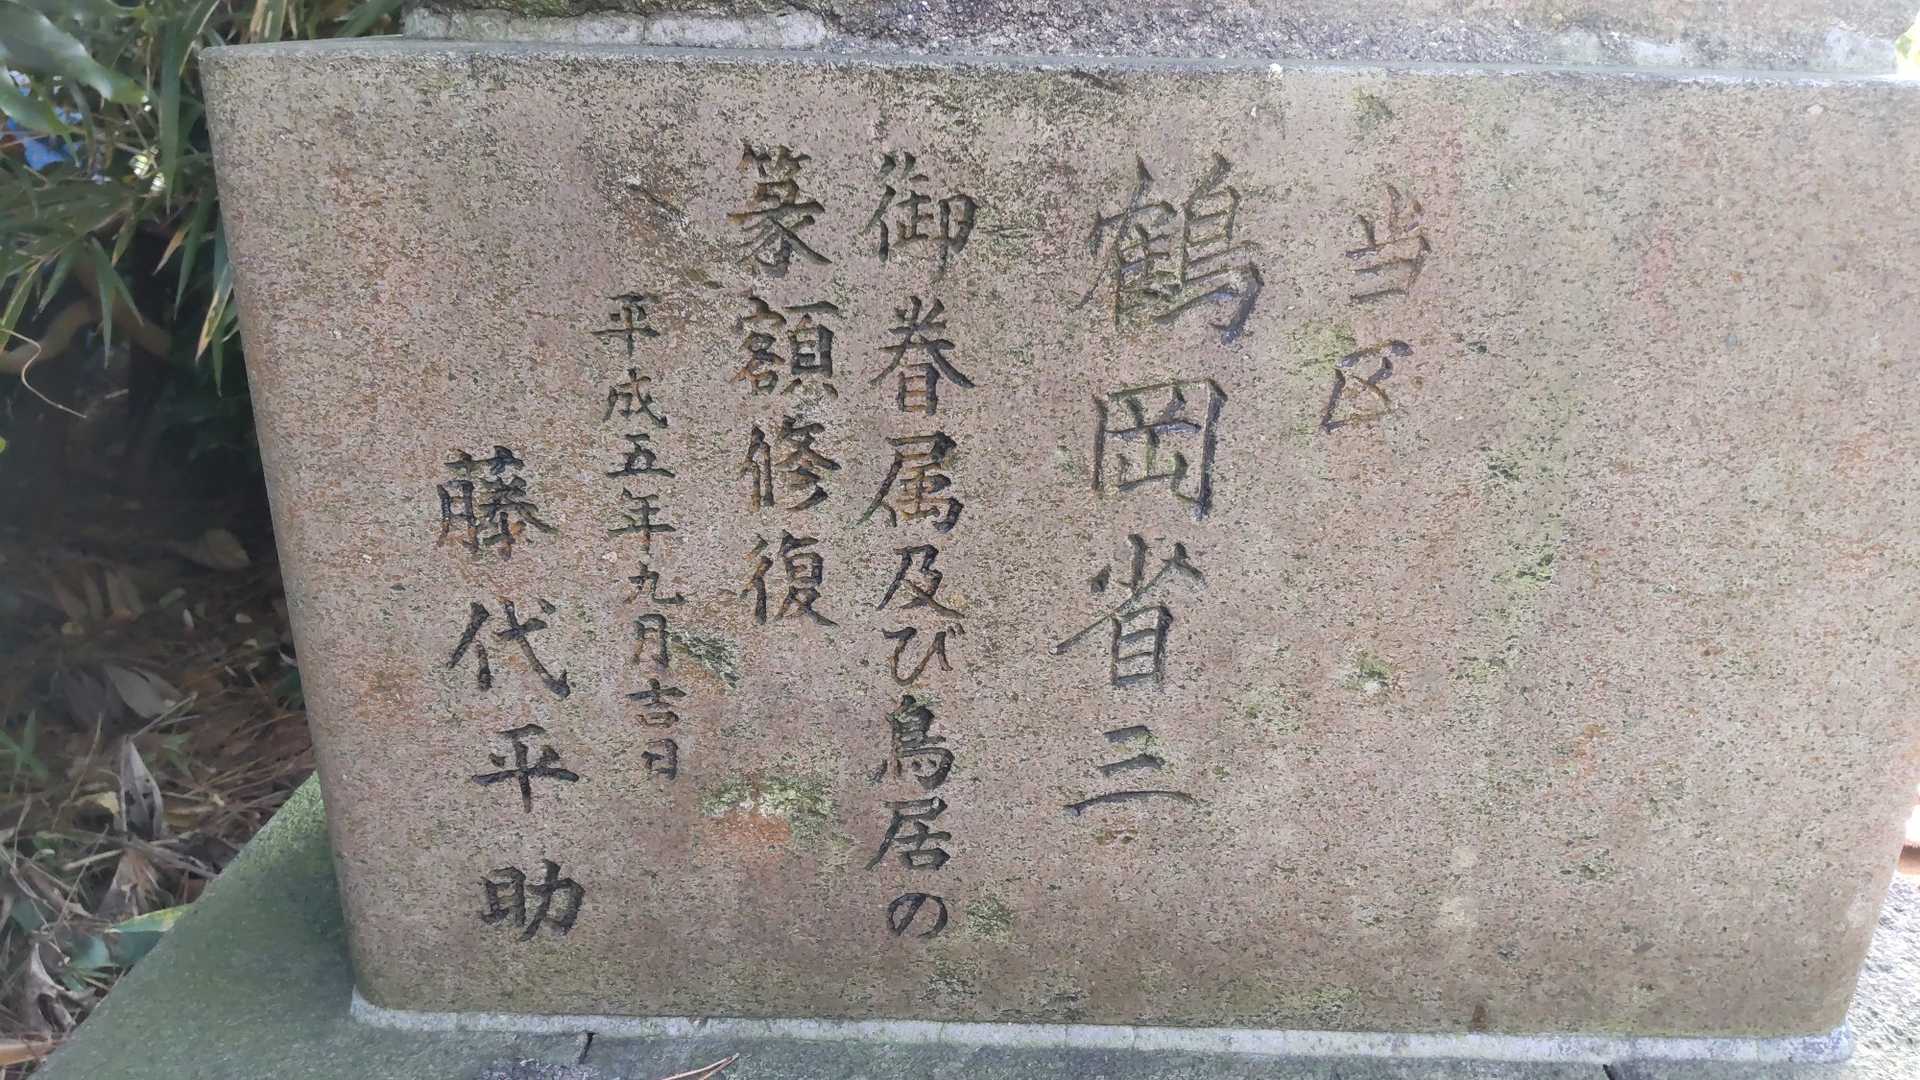 当区
鶴岡省三
御眷属及び鳥居の
篆額修復
平成五年九月吉日
藤代平助